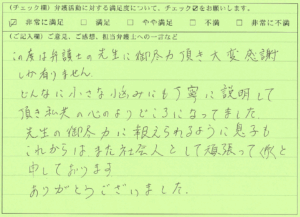 (チェック欄) 弁護活動に対する満足度について、チェック☑をお願いします。
☑ 非常に満足 □ 満足 □ やや満足 □ 不満 □ 非常に不満
(ご記入欄) ご意見、ご感想、担当弁護士への一言など
この度は弁護士の先生に御尽力頂き大変感謝
しか有りません。
どんなに小さな悩みにも丁寧に説明して
頂き私共の心のよりどころになってました。
先生の御尽力に報えられるように息子も
これからは、また社会人として頑張って行くと
申しております
ありがとうございました。